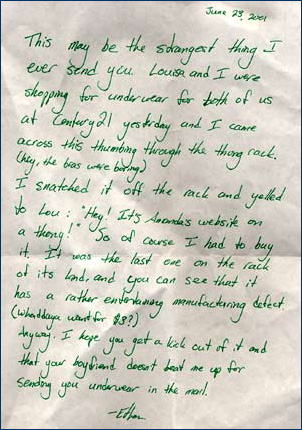 June 23, 2001
This may be the strangest thing I
ever send you. Louisa and I were
shopping for underwear for both of us
at Century 21 yesterday and I came
across this thumbing through the thong rack.
(hey, the bras were boring.)
I snatched it off the rack and yelled
to Lou: "Hey! It's Amanda's website on
a thong!" So of course I had to buy
it. It was the last one on the rack
of its kind, and you can see that it
has a rather entertaining manufacturing defect
(Whaddaya want for $3?)
Anyway. I hope you get a kick out of it and
that your boyfriend doesn't beat me up for
sending you underwear in the mail.
—Ethan